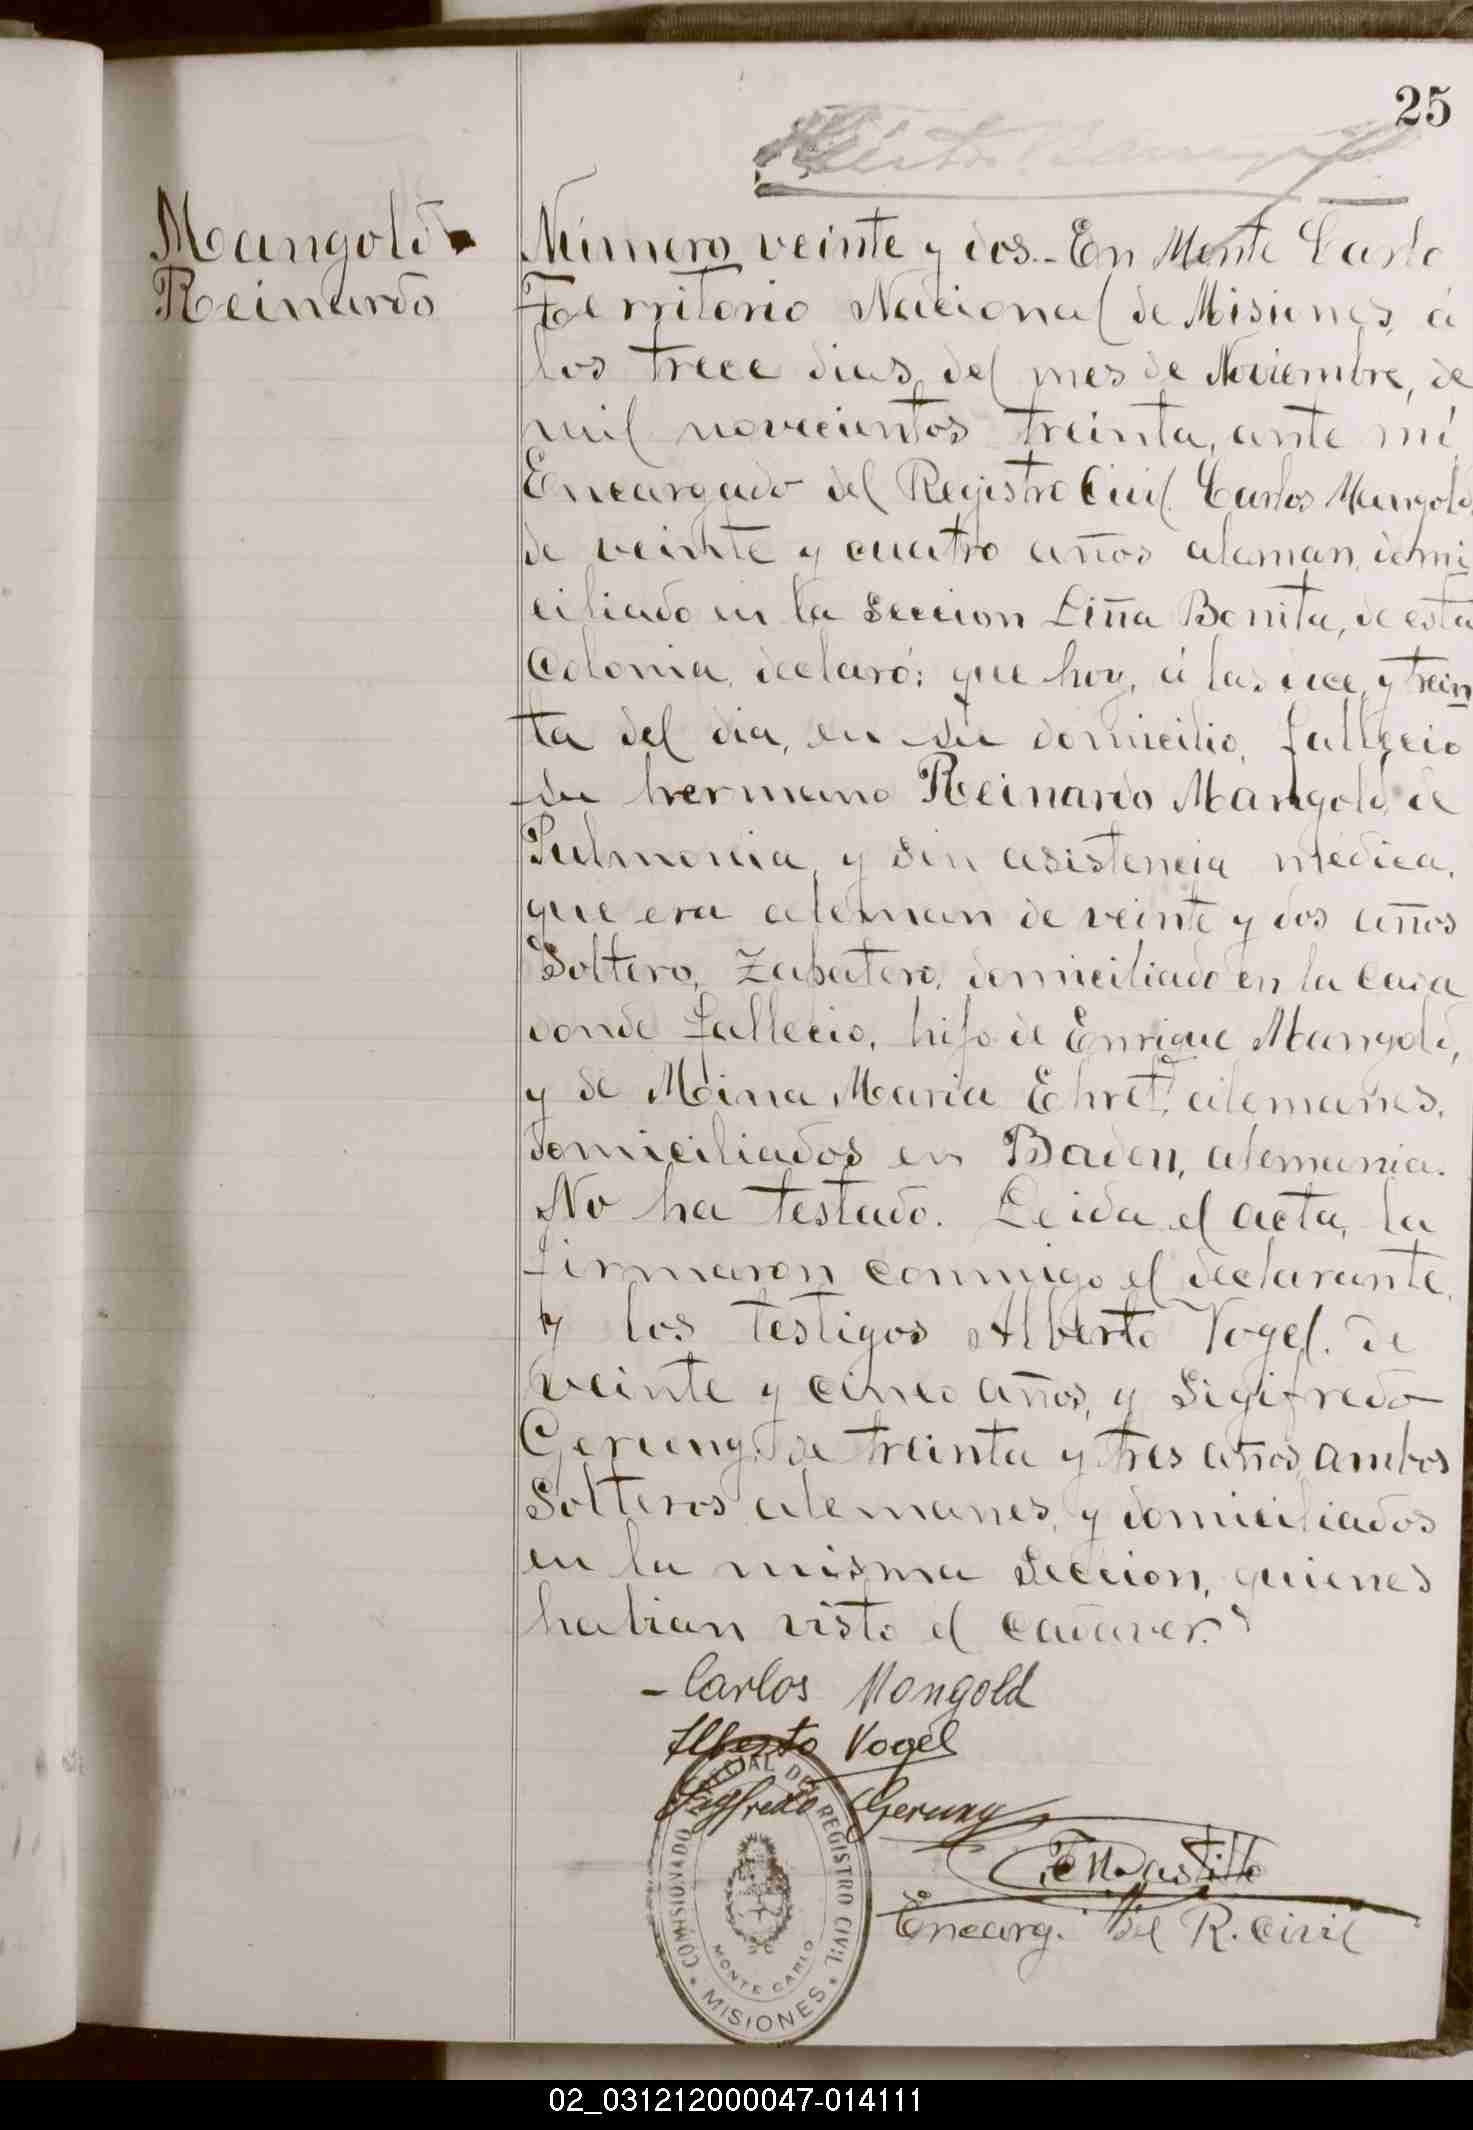 25
Mangold
Reinardo
Número veinte y dos.- En Monte Carlo
Territorio Nacional de Misiones, á
los trece dias del mes de Noviembre, de
mil novecientos treinta, ante mí
Encargado del Registro Civil. Carlos Mangold
de veinte y cuatro años aleman, domi
ciliado en la Seccion Liña Bonita, de esta
Colonia, declaró: que hoy, á las doce y trein
ta del dia, en su domicilio, fallecio
su hermano Reinardo Mangold, de
Pulmonia, y sin asistencia medica,
que era aleman de veinte y dos años
Soltero, Zapatero, domiciliado en la casa
donde fallecio, hijo de Enrique Mangold,
y de Mina Maria Ehret, alemanes,
domiciliados en Baden, alemania.
No ha testado. Leida el acta, la
firmaron conmigo el declarante,
y los testigos Alberto Vogel. de
veinte y cinco años, y Sigifredo
Gerung, de treinta y tres años, ambos
Solteros alemanes, y domiciliados
en la misma Seccion, quienes
habian visto el cadaver.
- Carlos Mangold
Alberto Vogel
Sigfredo Gerung
Encarg. del R. Civil
COMISIONADO ESPECIAL DEL REGISTRO CIVIL
MONTE CARLO
MISIONES
02_031212000047-014111